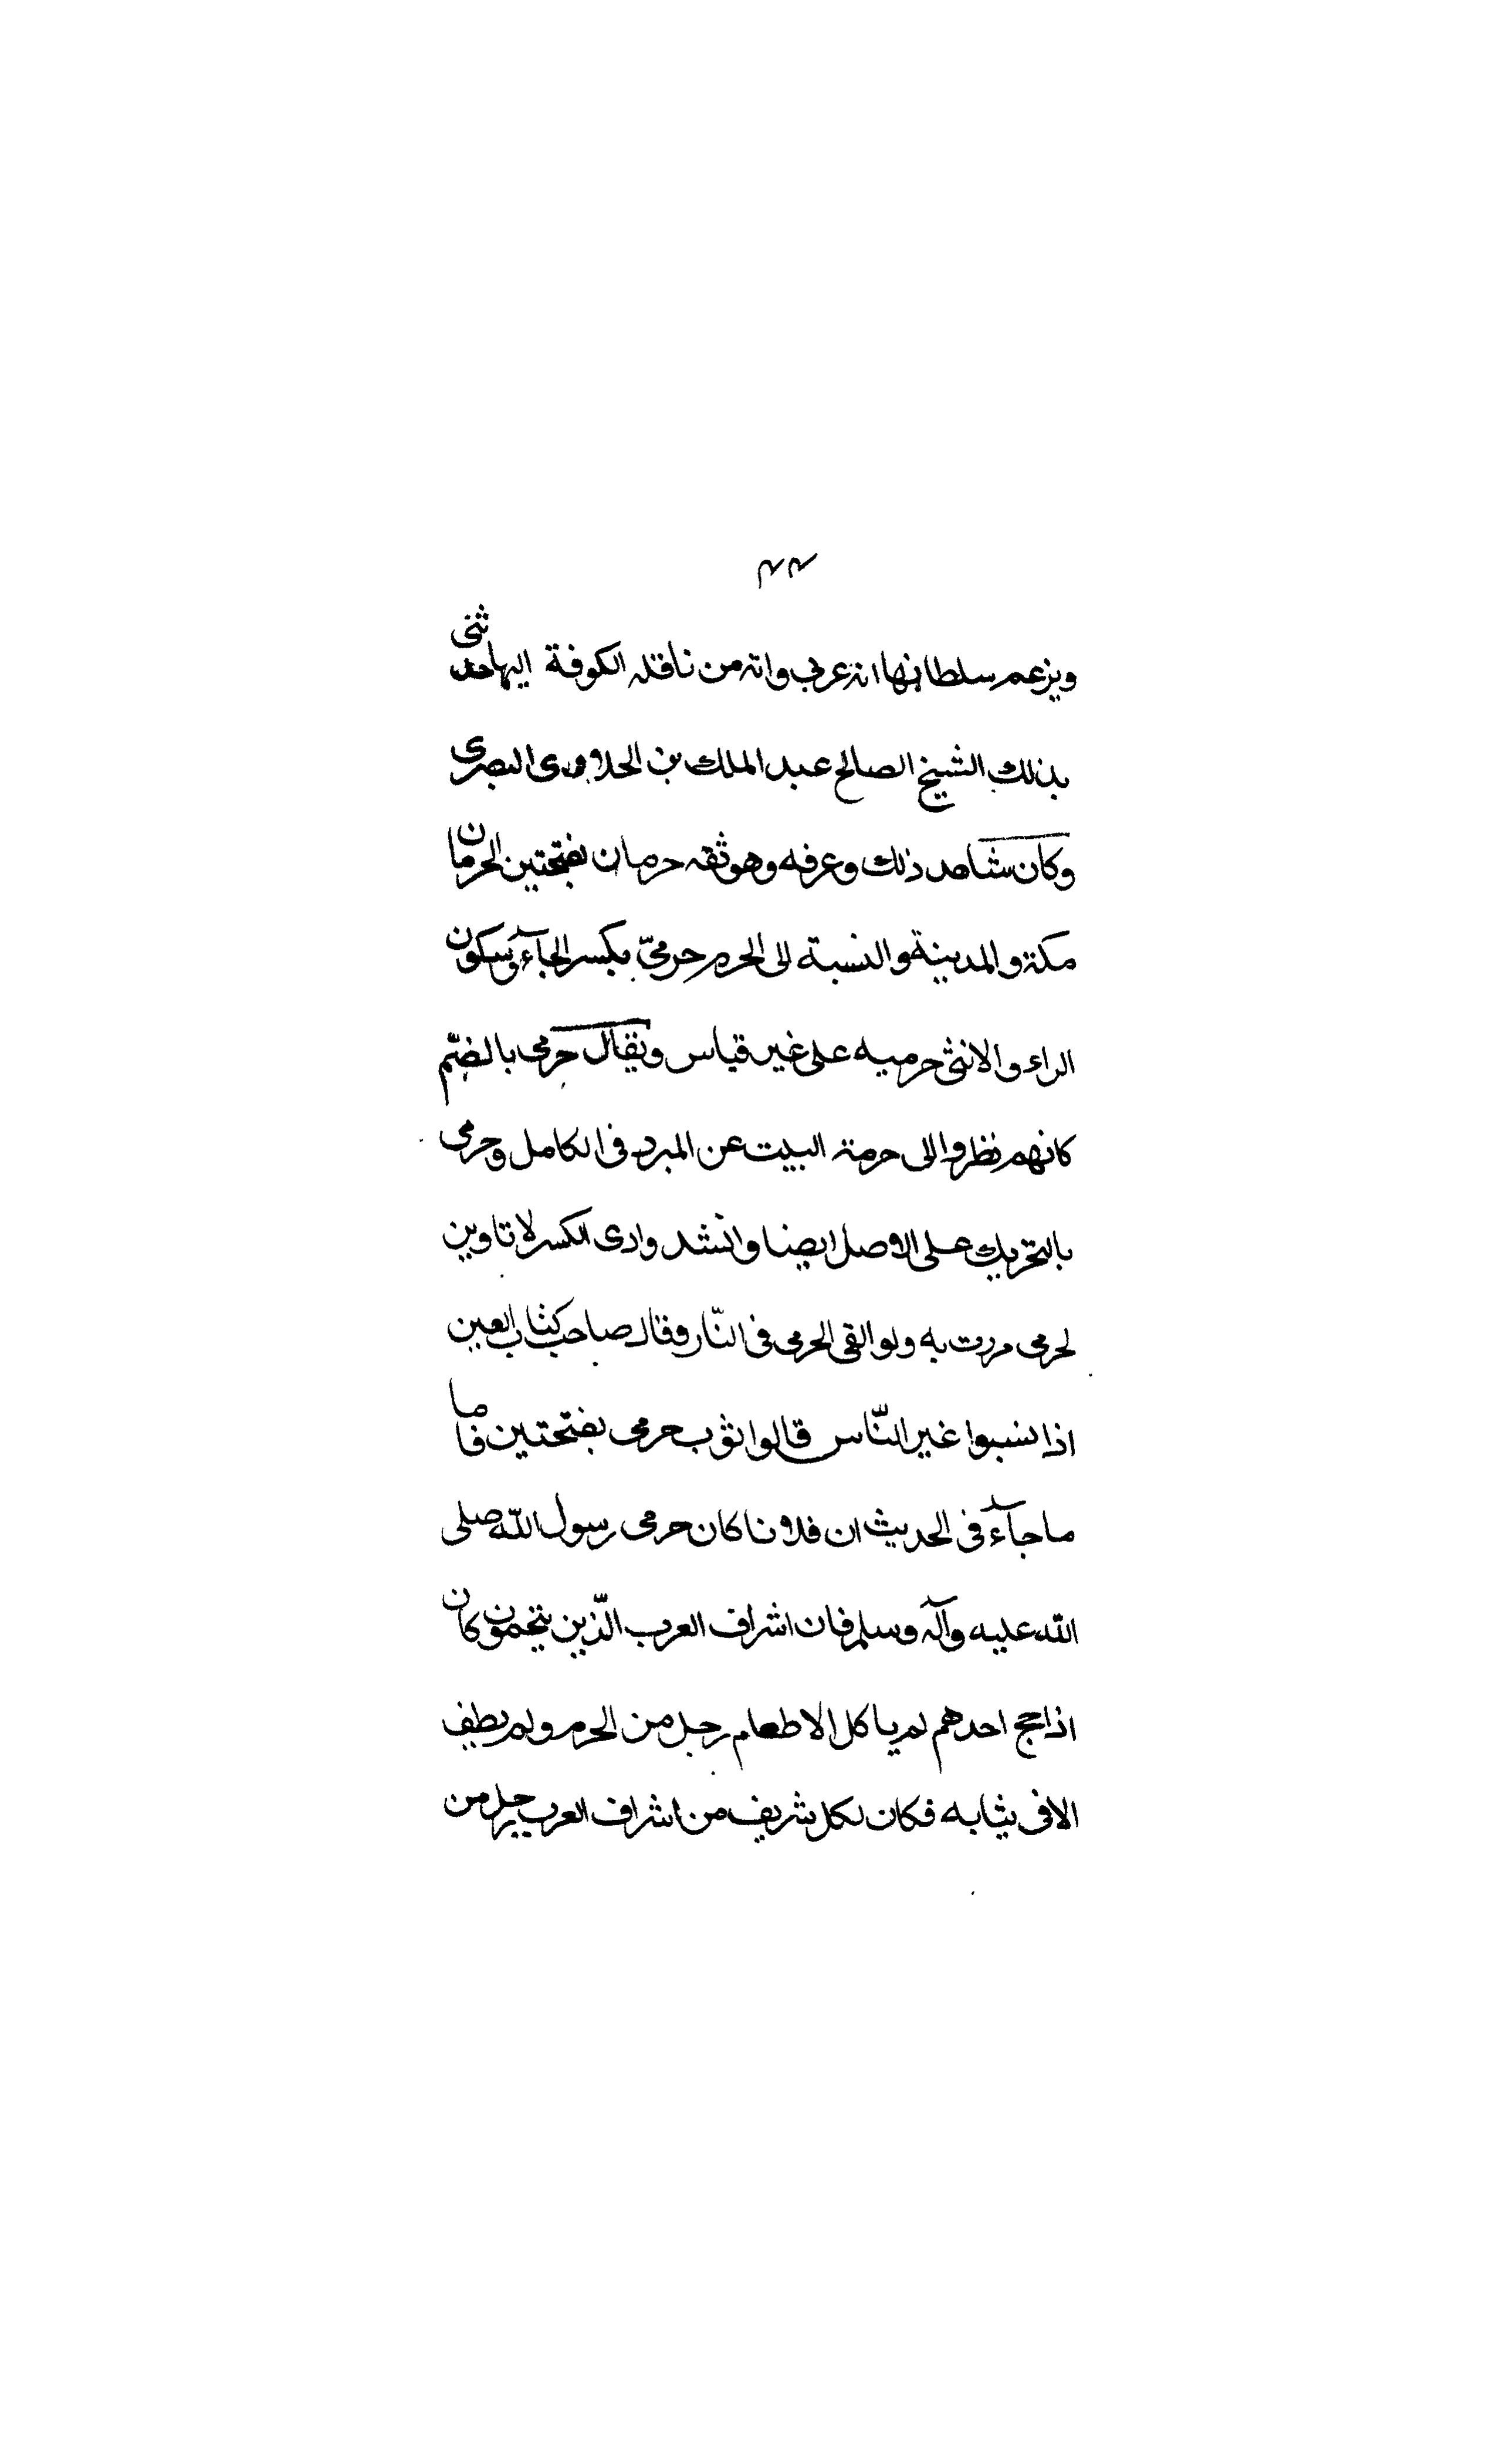 ويزعم سلطانها انه عربي وانه من ناقله الكوفة اليها حدثنى
بذلك الشيخ الصالح عبد الملك بن الحلاوى البصرى
وكان شاهد ذلك وعرفه وهو ثقه حرمان بفتحتين الحرمان
مكة والمدينة والنسبة الى الحرم حرمىّ بكسر الحآء وسكون
الراء والانثى حرميه على غير قياس ويقال حرمى بالضّم
كانهم نظروا الى حرمة البيت عن المبرد فى الكامل وحرمى
بالتحريك على الاصل ايضا وانشد وادى الكسر لا تاوين
لحرمى مررت به ولو القى الحرمى فى النّار وقال صاحب كتاب العين
اذا نسبوا غير النّاس قالوا ثوب حرمى بفتحتين فاما
ما جآء فى الحديث ان فلانا كان حرمى رسول الله صلى
الله عليه وآله وسلم فان اشراف العرب الّذين يتحمون كان
اذا حج احدهم لم ياكل الا طعام رجل من الحرم ولم يطف
الا فى ثيابه فكان لكل شريف من اشراف العرب رجل من